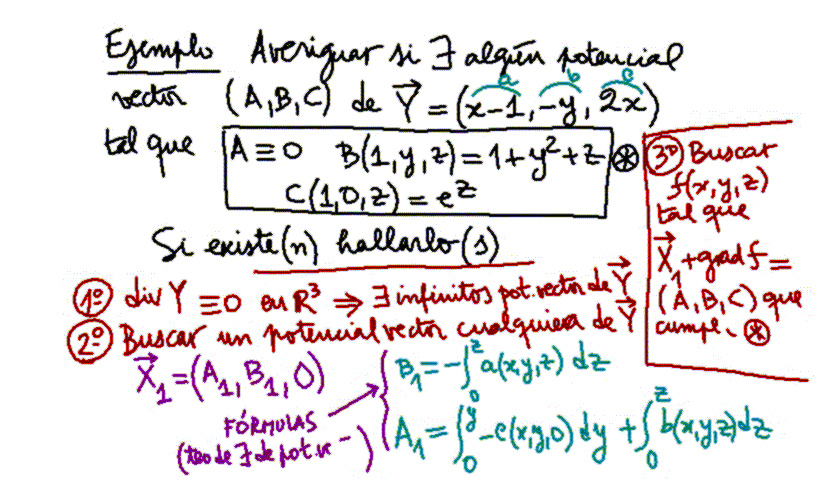 Ejemplo Averiguar si ∃ algún potencial
vector (A,B,C) de Y⃗ = (x-1, -y, 2x)
a b c
tal que A ≡ 0 B(1,y,z) = 1+y²+z ⊛
C(1,0,z) = e^z
Si existe(n) hallarlo(s)
1º div Y ≡ 0 en R³ ⇒ ∃ infinitos pot. vector de Y⃗
2º Buscar un potencial vector cualquiera de Y⃗
X⃗₁ = (A₁, B₁, 0)
FÓRMULAS
(teo de ∃ de pot. ve
B₁ = -∫₀^z a(x,y,z) dz
A₁ = ∫₀^y -c(x,y,0) dy + ∫₀^z b(x,y,z) dz
3º Buscar
f(x,y,z)
tal que
X⃗₁ + grad f =
(A,B,C) que
cumple ⊛